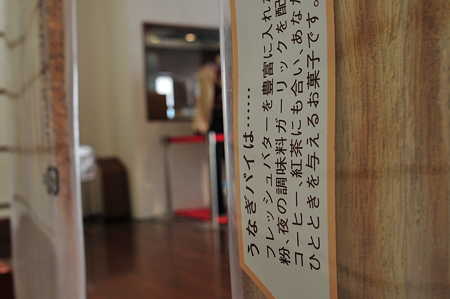 うなぎパイは……
フレッシュバターを豊富に入れ
粉、夜の調味料ガーリックを配
コーヒー、紅茶にも合い、あなた
ひとときを与えるお菓子です。